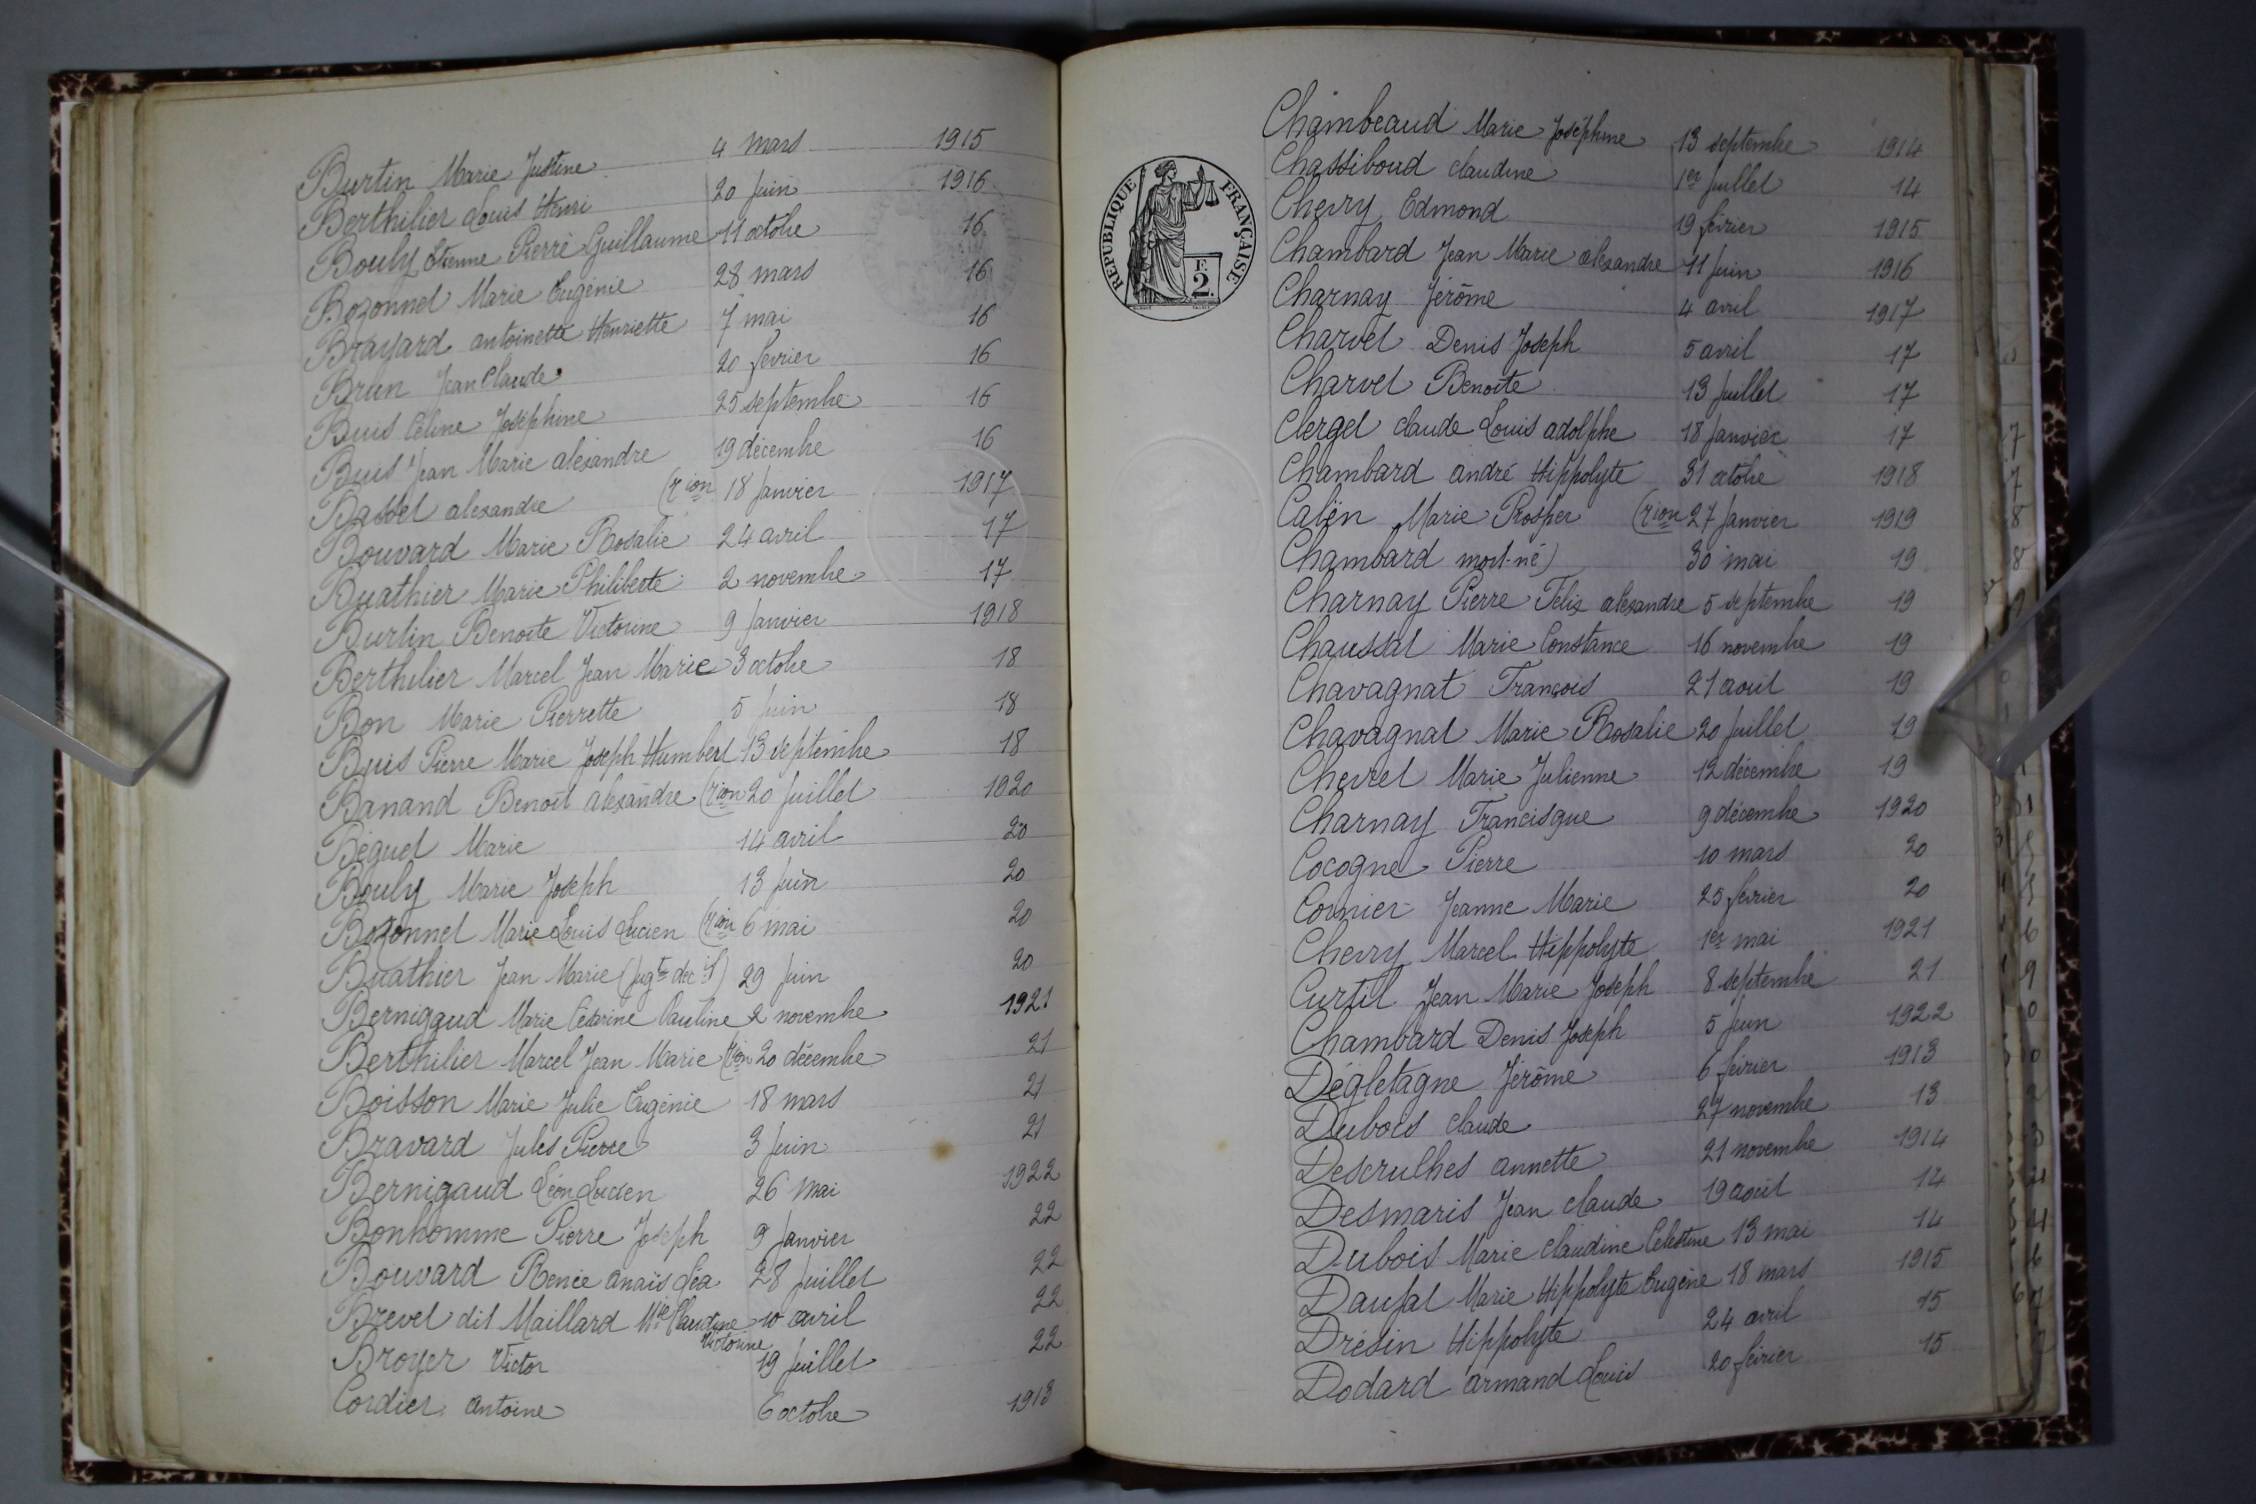 Burtin Marie Justine 4 mars 1915
Berthilier Louis Henri 20 Juin 1916
Bouly Etienne Pierre Guillaume 11 octobre 16
Bozonnet Marie Eugénie 28 mars 16
Brayard antoinette Henriette 7 mai 16
Brun Jean Claude 20 février 16
Buis Céline Joséphine 25 septembre 16
Buis Jean Marie alexandre 19 décembre 16
Basset alexandre (rion 18 Janvier 1917
Bouvard Marie Rosalie 24 avril 17
Buathier Marie Philiberte 2 novembre 17
Burtin Benoîte Victorine 9 Janvier 1918
Berthilier Marcel Jean Marie 3 octobre 18
Bon Marie Pierrette 5 Juin 18
Buis Pierre Marie Joseph Humbert 13 septembre 18
Banand Benoît alexandre (rion 20 Juillet 1920
Béguet Marie 14 avril 20
Bouly Marie Joseph 13 Juin 20
Bozonnet Marie Louis Lucien (rion 6 mai 20
Buathier Jean Marie (Jugt déc if) 29 Juin 20
Bernigaud Marie Césarine Pauline 2 novembre 1921
Berthilier Marcel Jean Marie (rion 20 décembre 21
Boisson Marie Julie Eugénie 18 mars 21
Bravard Jules Pierre 3 Juin 21
Bernigaud Léon Lucien 26 Mai 1922
Bonhomme Pierre Joseph 9 Janvier 22
Bouvard Renée anaïs Léa 28 Juillet 22
Brevet dit Maillard Mie Claudine Victorine 10 avril 22
Broyer Victor 19 Juillet 22
Cordier antoine 6 octobre 1913
RÉPUBLIQUE FRANÇAISE
F.
2.
Chambeaud Marie Joséphine 13 septembre 1914
Chassiboud claudine 1er Juillet 14
Chevry Edmond 19 février 1915
Chambard Jean Marie alexandre 11 Juin 1916
Charnay Jérôme 4 avril 1917
Charvet Denis Joseph 5 avril 17
Charvet Benoîte 13 Juillet 17
Clerget claude Louis adolphe 18 Janvier 17
Chambard andré Hippolyte 31 octobre 1918
Calën Marie Prosper (rion 27 Janvier 1919
Chambard mort-né) 30 mai 19
Charnay Pierre Félix alexandre 5 septembre 19
Chaussat Marie Constance 16 novembre 19
Chavagnat François 21 août 19
Chavagnat Marie Rosalie 20 Juillet 19
Chevret Marie Julienne 12 décembre 19
Charnay Francisque 9 décembre 1920
Cocogne Pierre 10 mars 20
Cormier Jeanne Marie 25 février 20
Chevry Marcel Hippolyte 1er mai 1921
Curtil Jean Marie Joseph 8 septembre 21
Chambard Denis Joseph 5 Juin 1922
Dégletagne Jérôme 6 février 1913
Dubois claude 27 novembre 13
Descrulhes annette 21 novembre 1914
Desmaris Jean claude 19 août 14
Dubois Marie claudine Célestine 13 mai 14
Daujat Marie Hippolyte Eugène 18 mars 1915
Drésin Hippolyte 24 avril 15
Dodard armand Louis 20 février 15